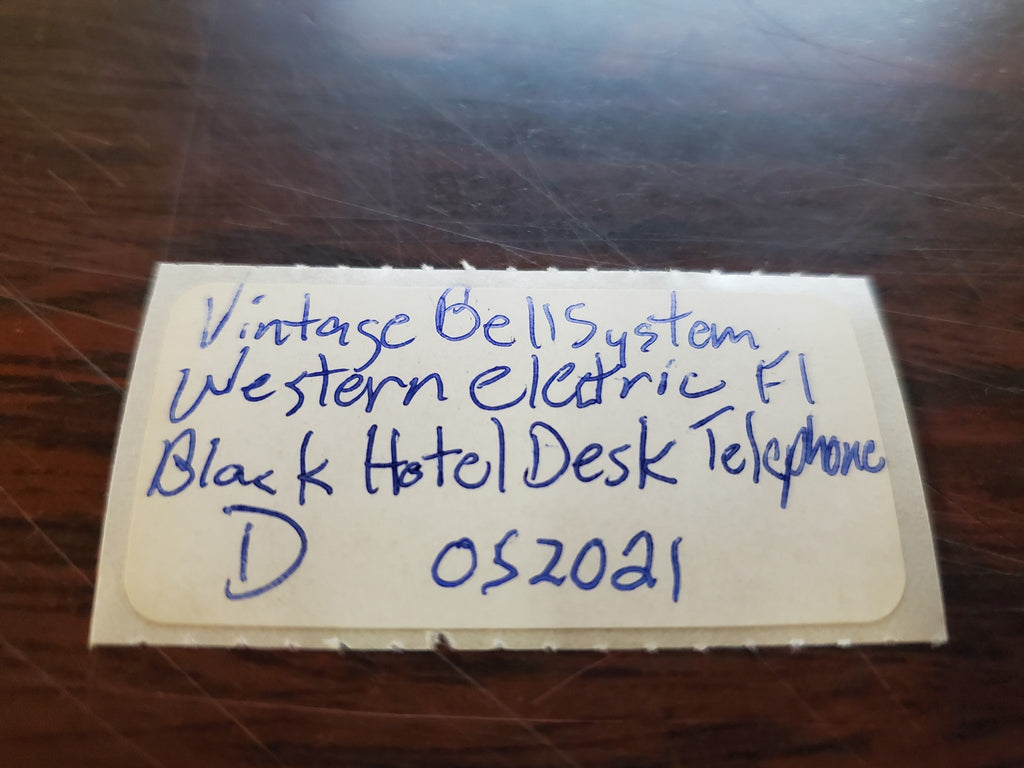 Vintage Bell System
Western electric F1
Black Hotel Desk Telephone
D 052021